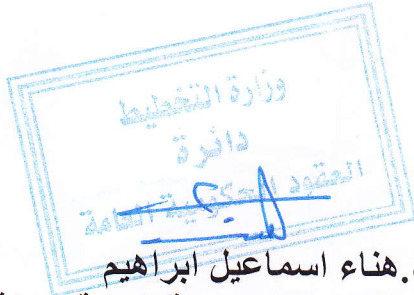 وزارة التخطيط
دائرة
العقود الحكومية العامة
.هناء اسماعيل ابراهيم